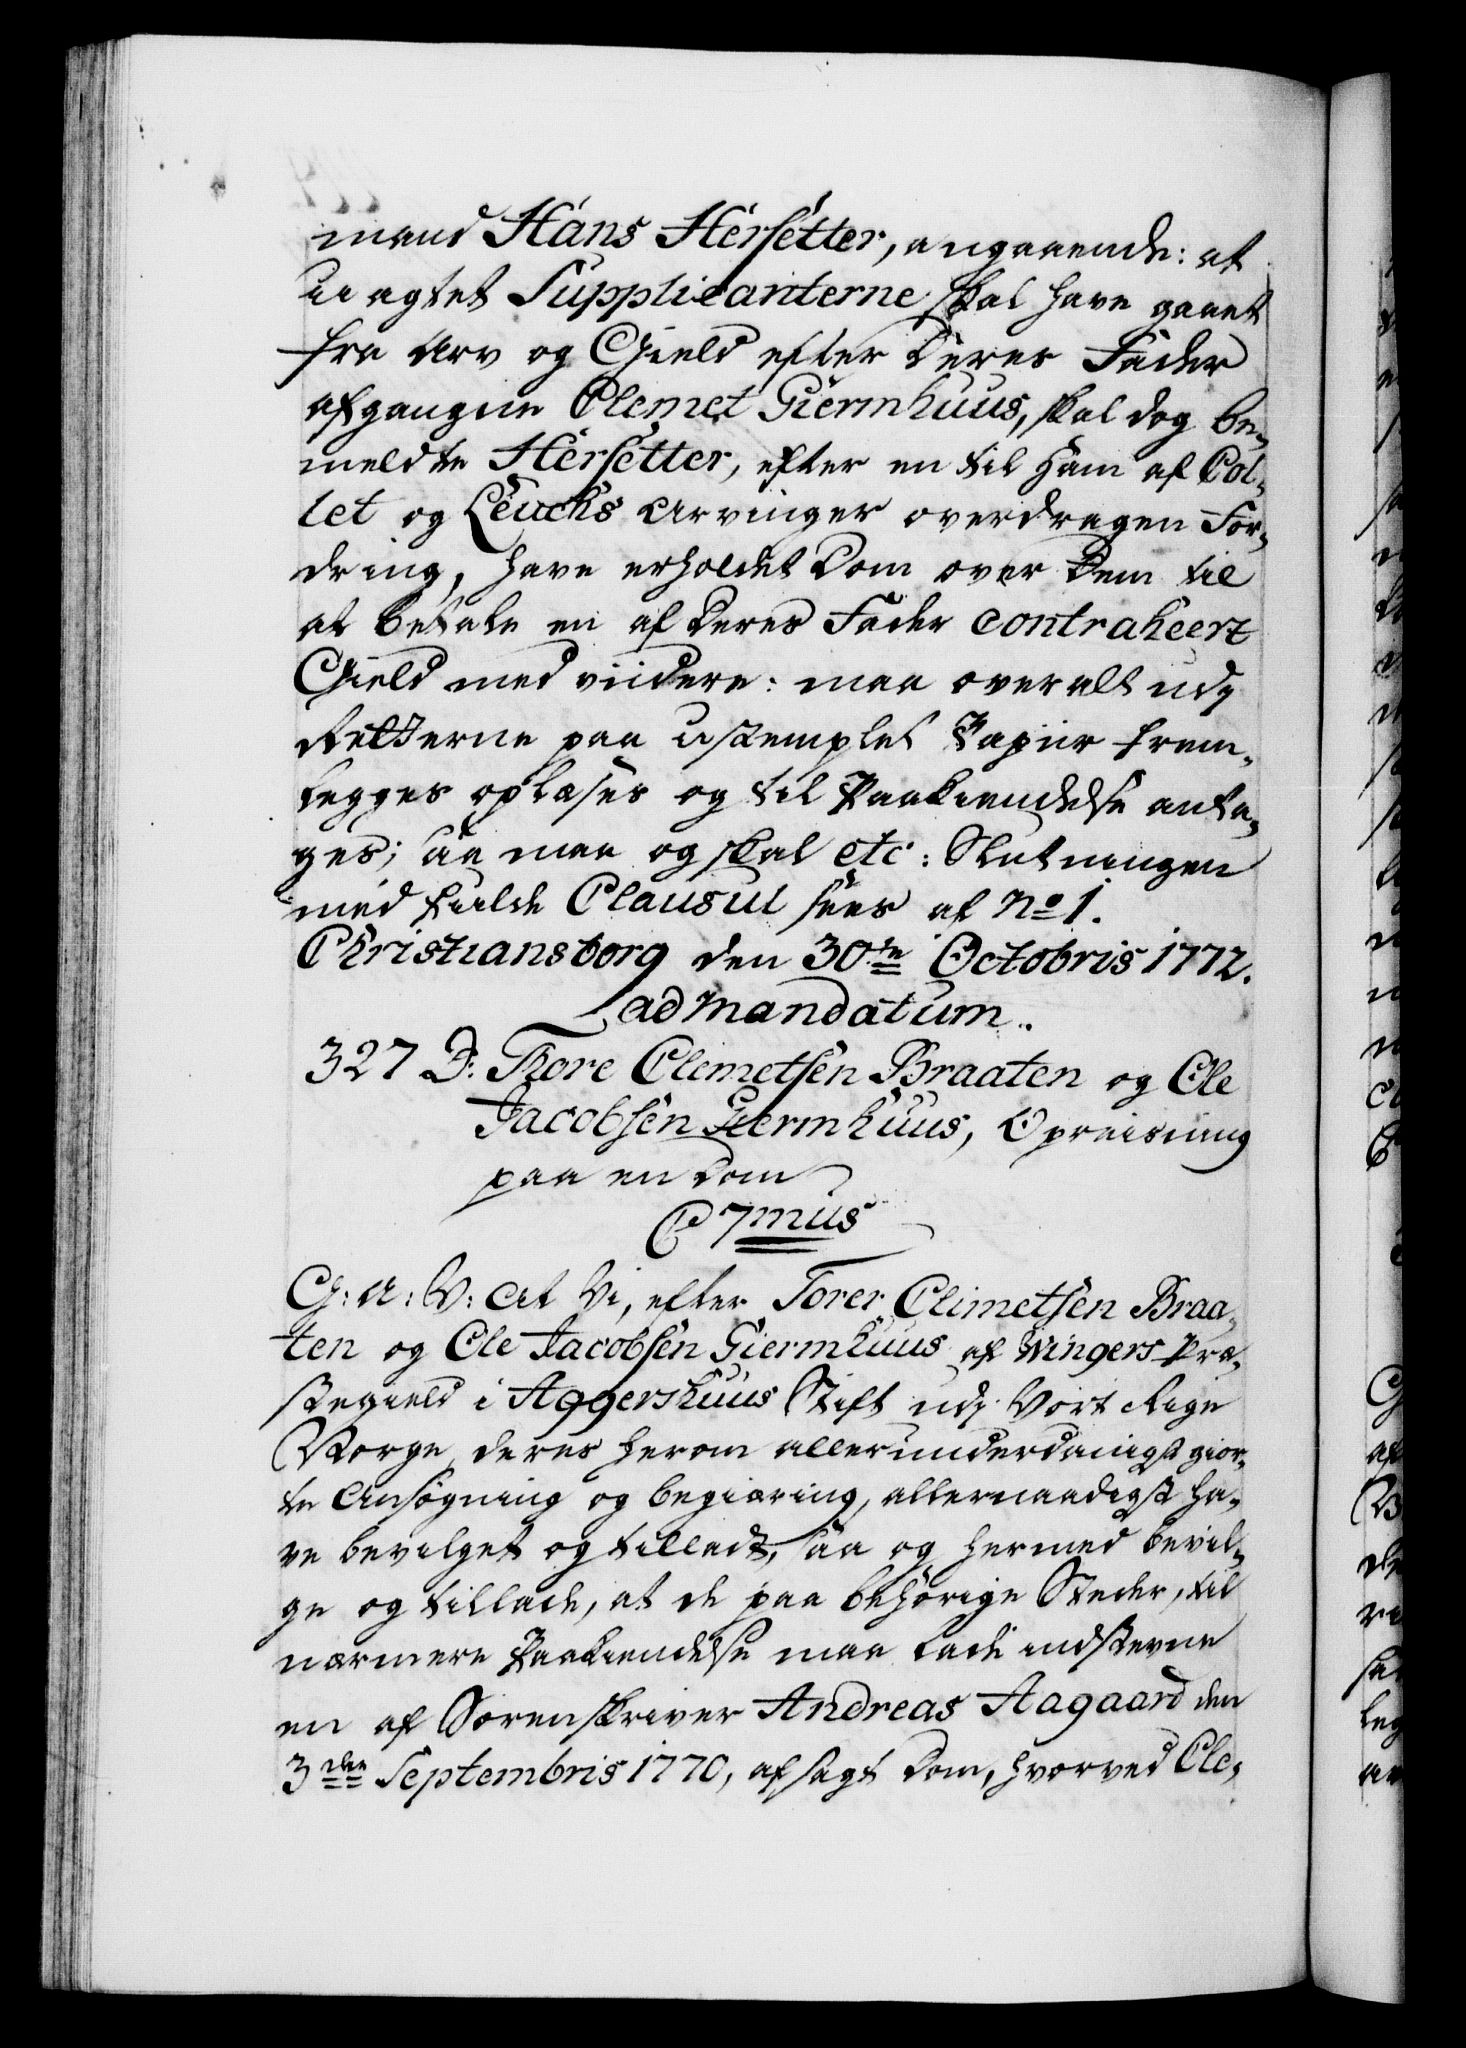 mand Hans Hersetter, angaaende: at
uagtet Supplicanterne skal have gaaet
fra Arv og Gield efter Deres Fader
afgangne Clemet Giermhuus, skal dog be-
meldte Hersetter, efter en til ham af Col-
let og Leuchs Arvinger overdragen For-
dring, have erholdet Dom over Dem til
at betale en af Deres Fader contraheert
Gield med viidere: maa overalt udj
Retterne paa ustemplet Papiir frem-
legges oplæses og til Paakiendelse anta-
ges; saa maa og skal etc: Slutningen
med fulde Clausul sees af No 1.
Christiansborg den 30te Octobris 1772.
ad mandatum.
327 B: Thore Clemetsen Braaten og Ole
Jacobsen Giermhuus, Opreisning
paa en Dom
C 7mus
G: A: V: At Vi, efter Torer Climetsen Braa-
ten og Ole Jacobsen Giermhuus af Wingers Præ-
stegield i Aggershuus Stift udj Vort Rige
Norge, deres herom allerunderdanigst gior-
te Ansøgning og begiæring, allernaadigst ha-
ve bevilget og tilladt, saa og hermed bevil-
ge og tillade, at de paa behørige Steder, til
nærmere Paakiendelse maa lade indstevne
en af Sorenskriver Andreas Aagaard den
3die Septembris 1770, afsagt Dom, hvorved Cle-